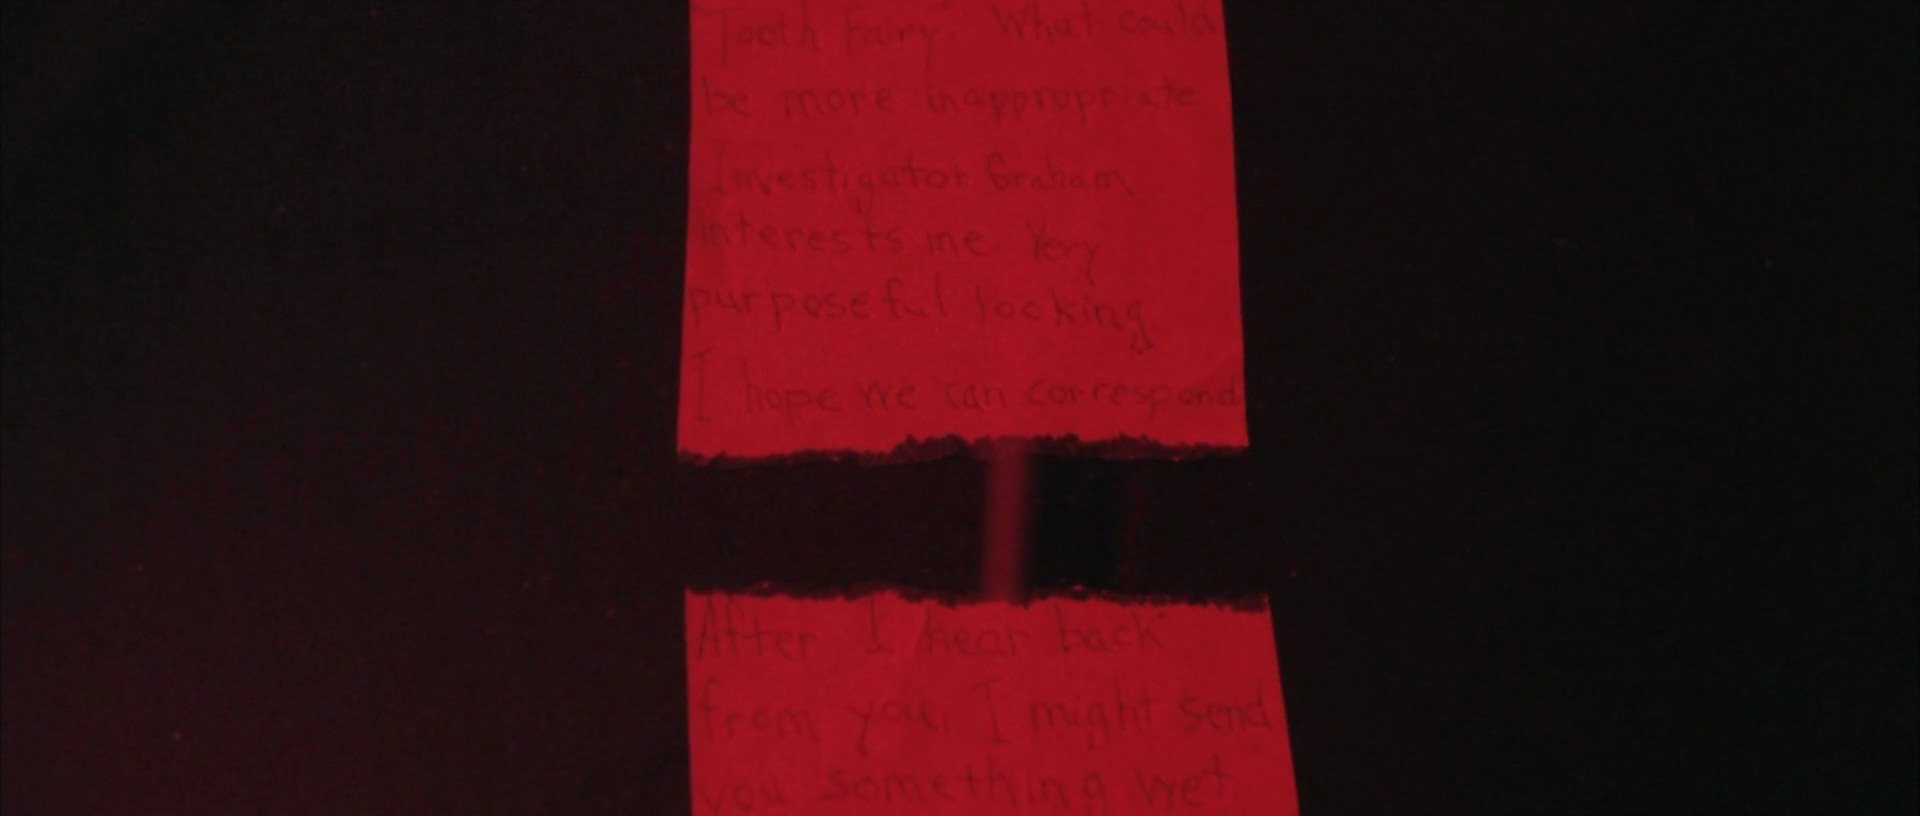 Tooth Fairy". What could
be more inappropriate
Investigator Graham
interests me Very
purposeful looking
I hope we can correspond
After I hear back
from you, I might send
you something wet.